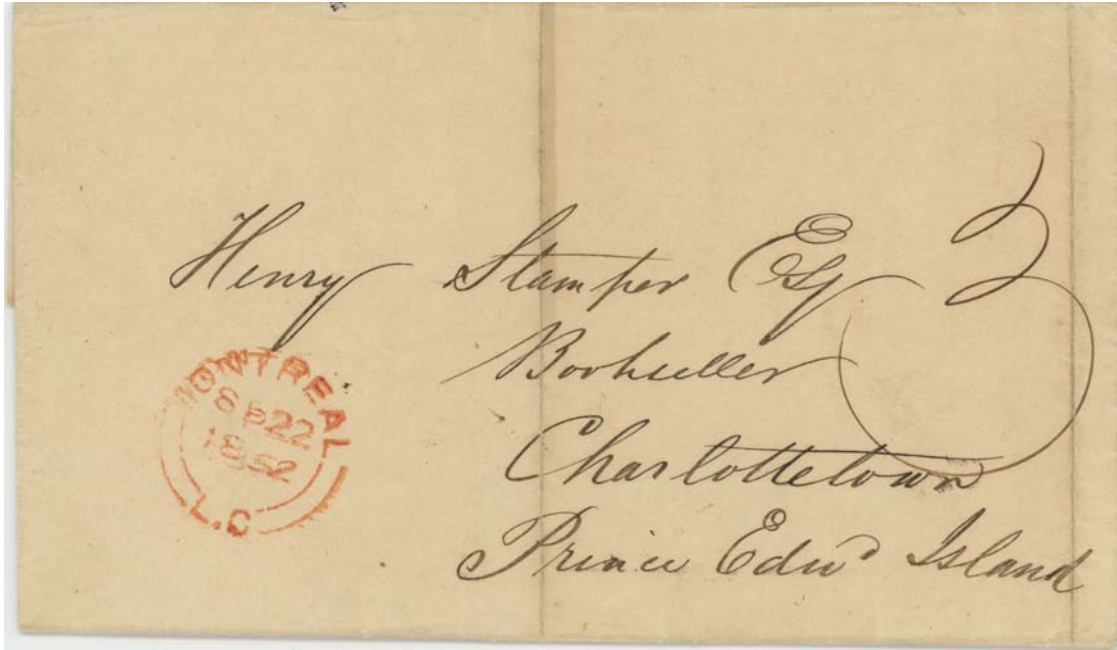 Henry Stamper Esq
Bookseller
Charlottetown
Prince Edwd Island
3
MONTREAL
SP 22
1852
L.C